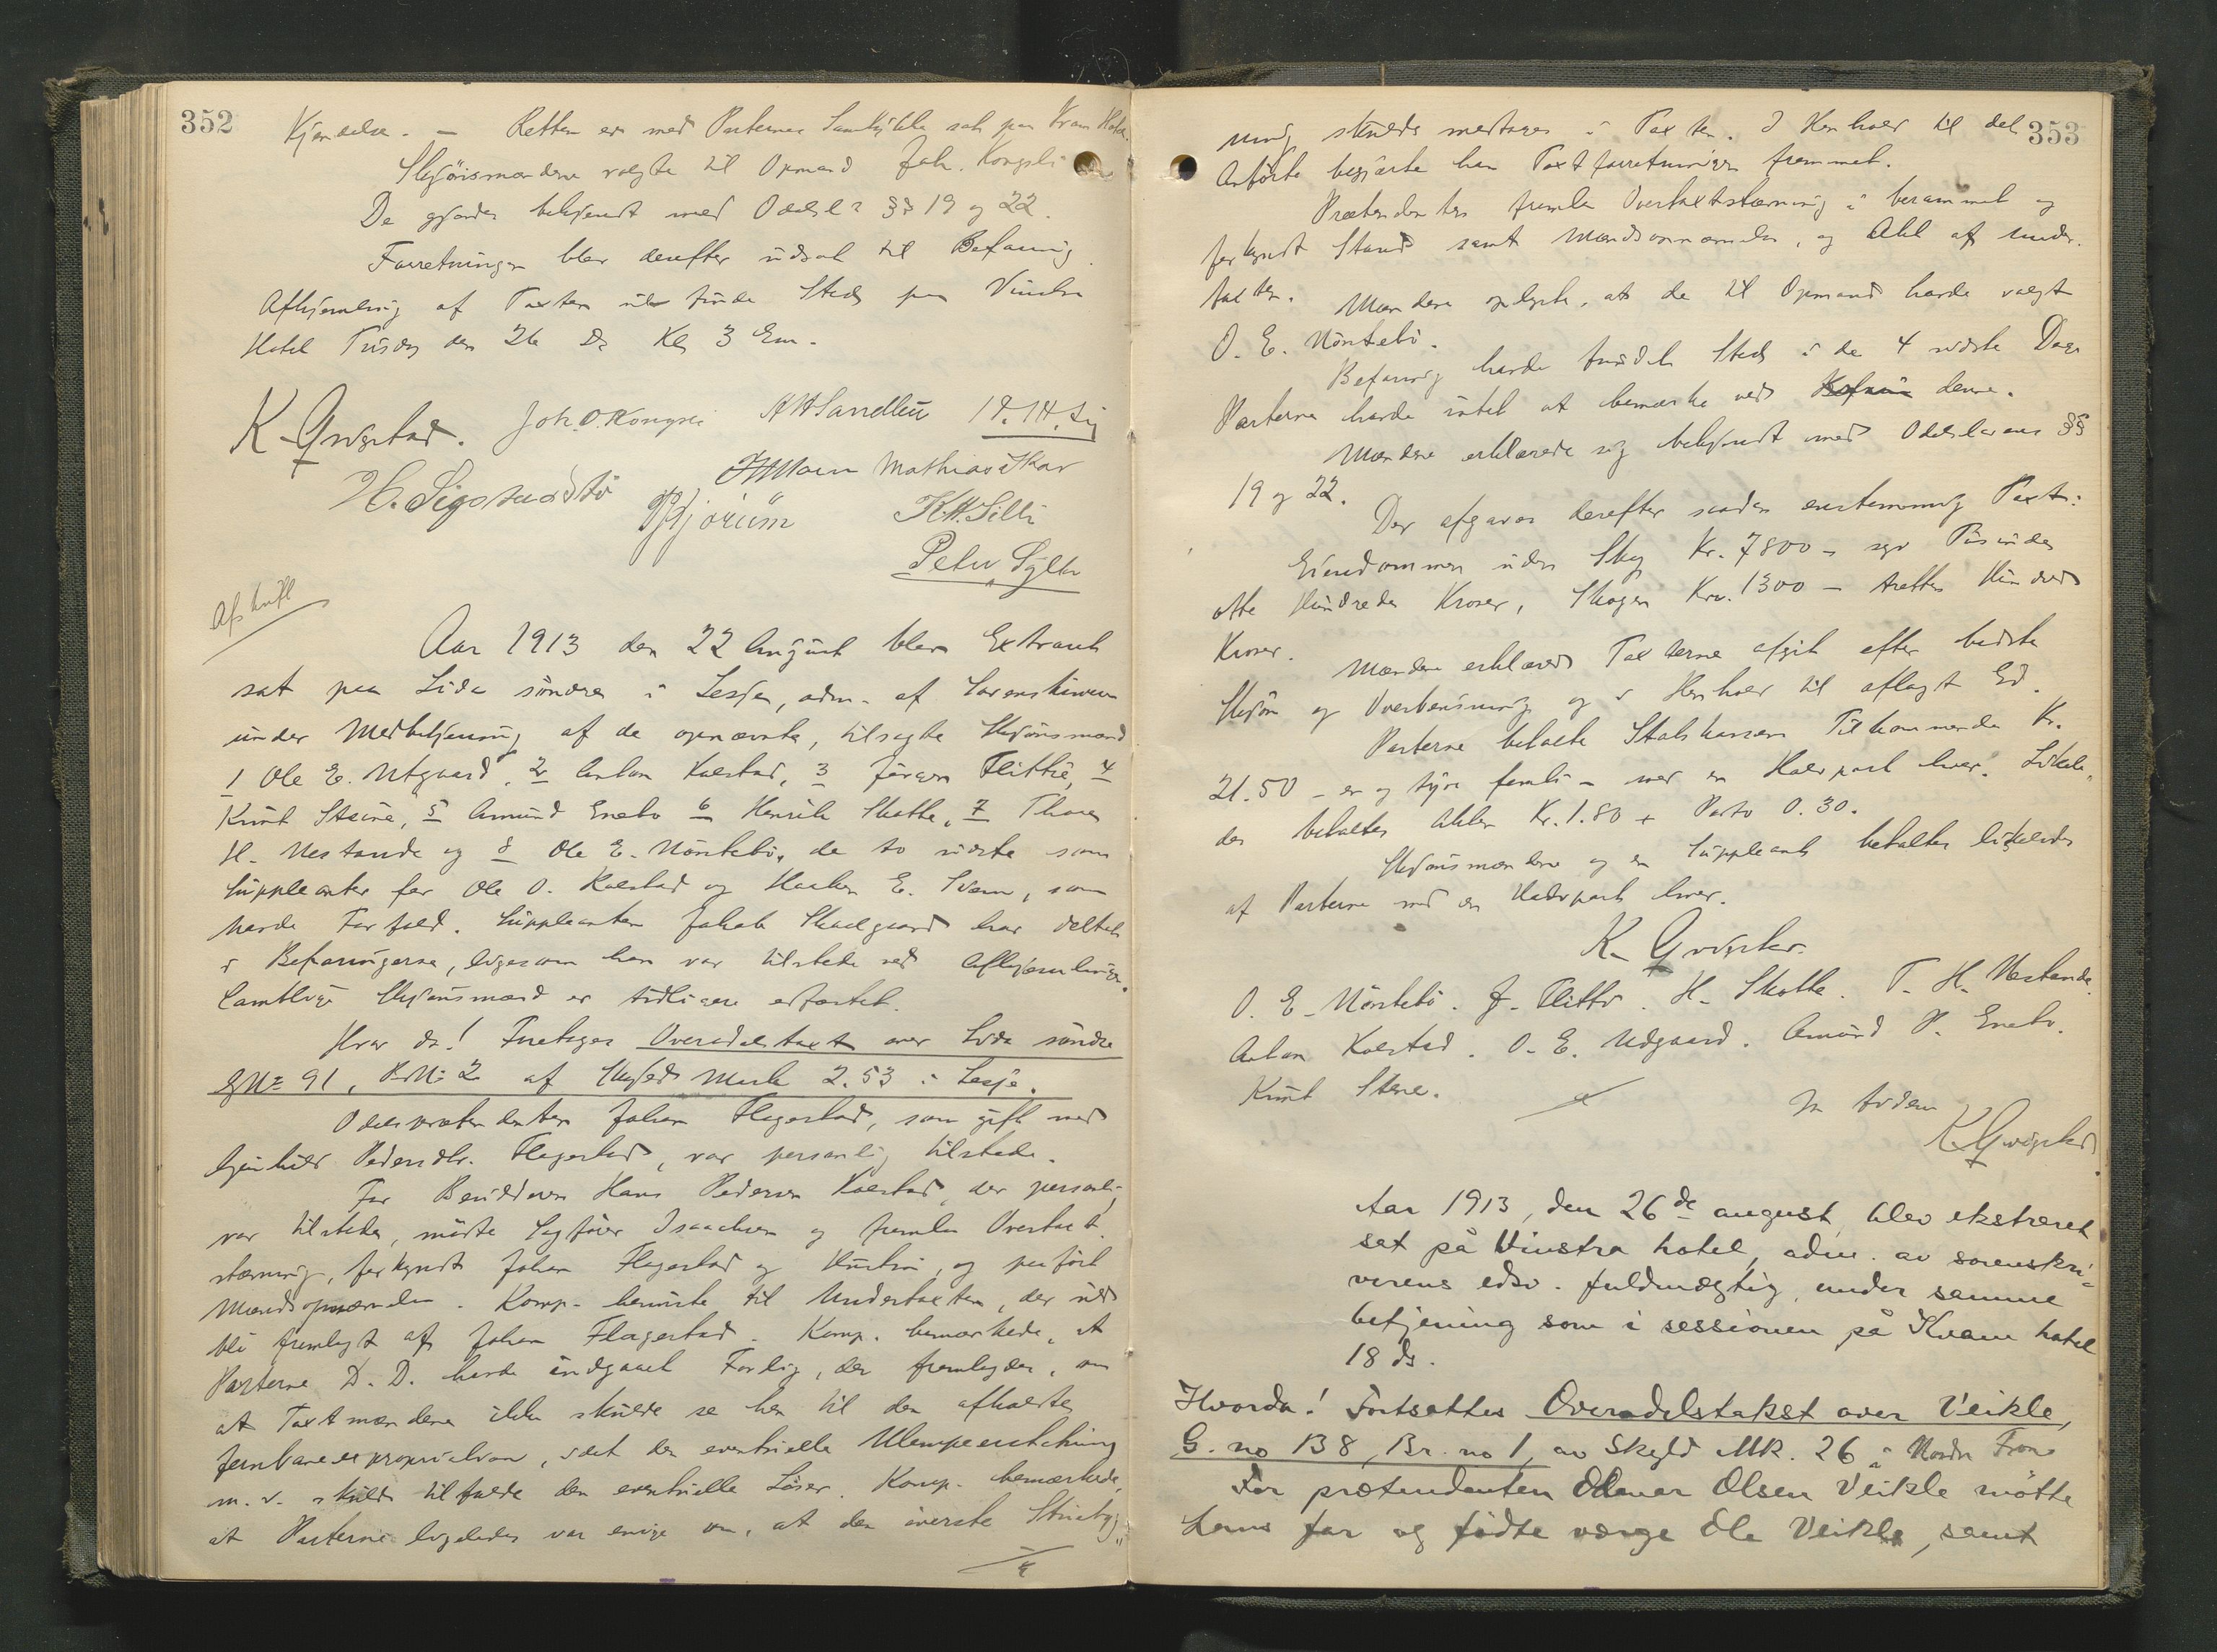 352
Kjendelse. — Retten er med Parternes Samtykke sat paa Kvam Hotel.
Skjönsmændene valgte til Opmand Joh. Kongsli
De gjordes bekjendt med Odelsl. §§ 19 og 22.
Forretningen blev derefter udsat til Befaring.
Afhjemling af Taxten vil finde Sted paa Vinstra
Hotel Tirsdag den 26 ds Kl 3 Em.
K. Qvigstad. Joh. O. Kongsli A H Sandbu
H. Sigstadstø Mathias Skar
K. H. Silli
Peter Sylte
Afskrift
Aar 1913 den 22 August blev Extraret
sat paa Lida söndre i Lesje, adm. af Sorenskriveren
under Medbetjening af de opnævnte, tilsagte Skjönsmænd
1 Ole E. Utgaard, 2 Anton Kolstad, 3 Jörgen Flittie, 4
Knut Stene, 5 Amund Enebo 6 Henrik Skotte, 7 Thore
H. Nestande og 8 Ole E. Nörstebö, de to sidste som
Suppleanter for Ole O. Kolstad og Haakon E. , som
havde Forfald. Suppleanten Jakob Skadgaard har deltat
i Befaringerne, ligesom han var tilstede ved Afhjemlingen.
Samtlige Skjönsmænd er tidligere edfæstet.
Hvor da! Foretoges Overodelstaxt over Lida söndre
G No 91, B. No 2 af Skyld Mark 2.53 i Lesje.
Odelsprætendenten Johan Flagestad, som gift med
Gunhild Pedersdtr. Flagestad, var personlig tilstede.
For Besidderen Hans Pedersen Kolstad, der personlig
var tilstede, mödte Sagförer Isaachsen og fremla Overtaxt-
stævning, forkyndt Johan Flagestad og Hustru, og paafört
Mandsopnævnelse. Komp. henviste til Undertaxten, der vil
bli fremlagt af Johan Flagestad. Komp. bemærkede, at
Parterne D. D. havde indgaaet Forlig, der fremlagdes, om
at Taxtmændene ikke skulde se hen til den afholdte
Jernbaneexpropriation, idet den eventuelle Ulempeerstatning
m. v. skulde tilfalde den eventuelle Löser. Komp. bemærkede,
at Parterne ligeledes var enige om, at den överste Stuebyg„
353
ning skulde medtages i Taxten. I Henhold til det
Anförte begjærte han Taxtforretningen fremmet.
Prætendenten fremla Overtaxtstævning i berammet og
forkyndt Stand samt Mandsopnævnelse, og Akt af Under-
taxten. Mændene oplyste, at de til Opmand havde valgt
O. E. Nörstebö.
Befaring havde fundet Sted i de 4 sidste Dage
Parterne havde intet at bemærke ved denne.
Mændene erklærede sig bekjendt med Odelslovens §§
19 og 22.
Der afgaves derefter saadan enstemmig Taxt:
Eiendommen uden Skog Kr. 7800 – syv Tusinde
otte Hundrede Kroner, Skogen Kr. 1300 – tretten Hundrede
Kroner.
Mændene erklærede Taxterne afgit efter bedste
Skjön og Overbevisning og i Henhold til aflagt Ed.
Parterne betalte Statskassen Tilkommende Kr.
21.50 – en og tyve femti – med en Halvpart hver. Likele„
des betaltes Akten Kr. 1.80 + Porto 0.30.
Skjönsmændene og en Suppleant betaltes likeledes
af Parterne med en Halvpart hver.
K. Qvigstad.
O. E. Nörstebö. J. Flittie. H. Skotte. T. H. Nestande.
Anton Kolstad. O. E. Udgaard. Amund P. Enebo.
Knut Stene.
K Qvigstad
Aar 1913, den 26de august, blev ekstraret
sat på Vinstra hotel, adm. av sorenskri-
verens edsv. fuldmægtig, under samme
betjening som i sessionen på Kvam hotel
18 ds.
Hvorda! Fortsattes Overodelstakst over Veikle,
G. no 138, Br. no 1, av Skyld Mk. 26 i Nordre Fron
For prætendenten Olsen Veikle mötte
hans far og födte værge Ole Veikle, samt